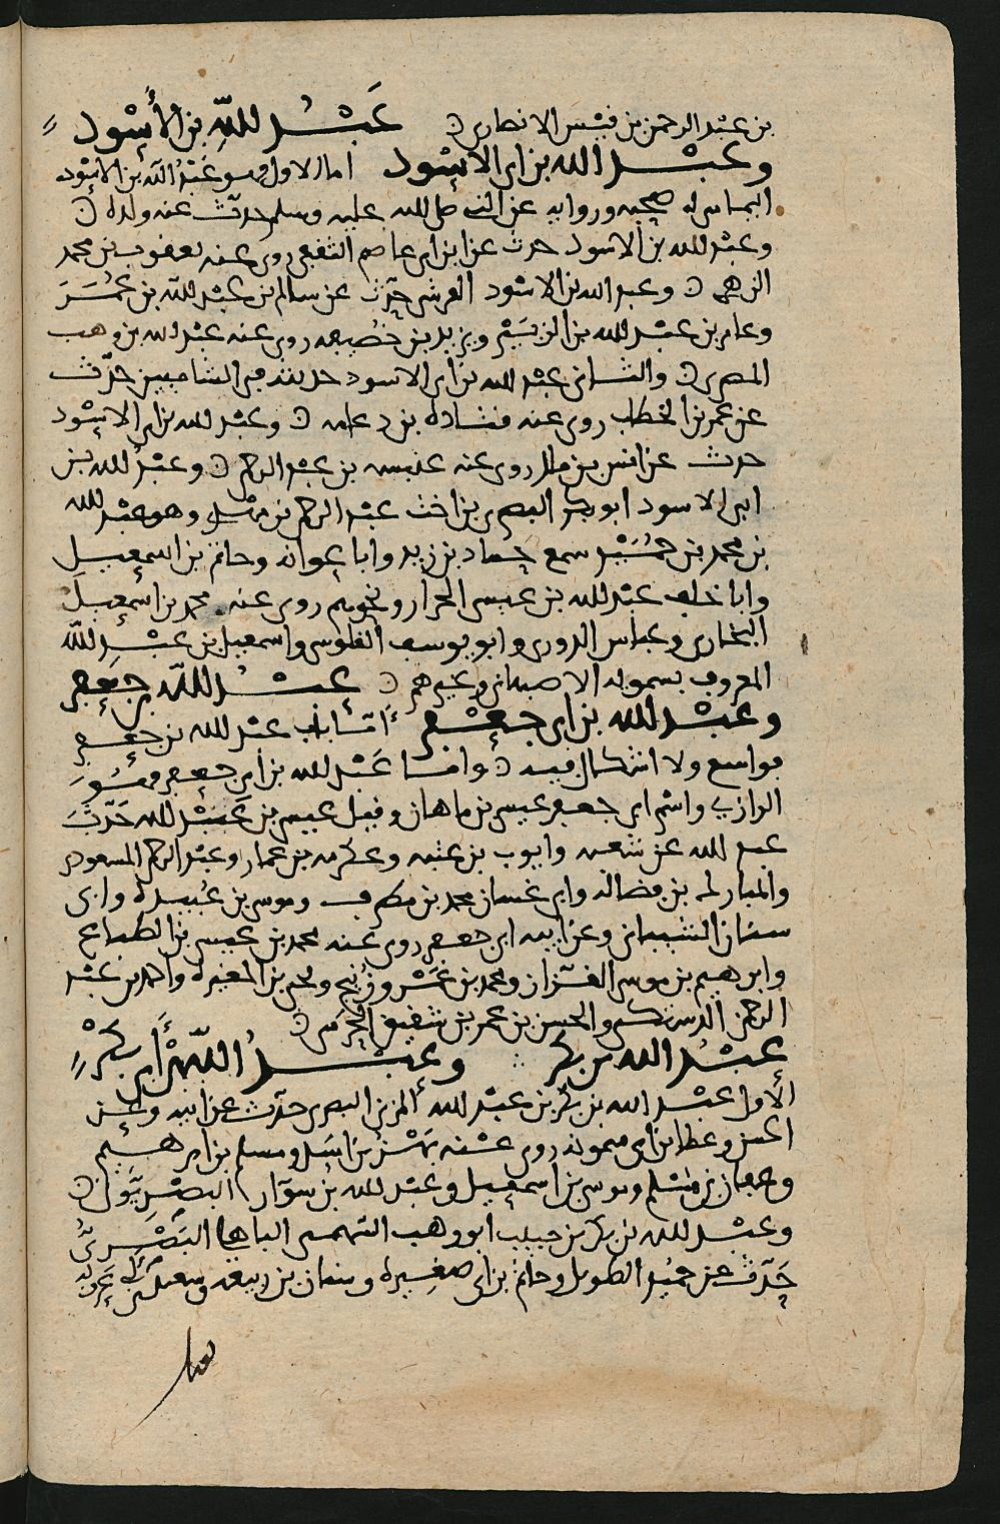 بن عبد الرحمن بن قيس الانصاري عَبْدُ للهِ بن الأسْود
وعبد الله بن ابي الاسْود اما الاول فهو عَبْدُ الله بن الاسود
له صحبه وروايه عن النبي صلى الله عليه وسلم حدث عنه ولده
وعبد لله بن الاسود حدث عن ابن ابي عاصم الثقفي روى عنه يعقوب بن محمد
الزهري وعبد الله بن الاسْود القرشي حدّث عن سالم بن عبْد لله بن عُمَرَ
وعامر بن عبْد لله بن الزبَيْر ويزيد بن خُصيفه روى عنه عبْد الله بن وهب
المصري والثاني عبْد لله بن ابي الاسود حديثه في الشاميين حدّث
عن عمر بن الخطاب روى عنه قتاده بن دعامه وعبْد لله بن ابي الاسْود
حدث عن انس بن مالك روى عنه عنبسه بن عبْد الرحمن وعبْدُ لله بن
ابي الاسود ابو بكر البصري بن اخت عبْد الرحمن بن مهدي وهو عبْد لله
بن محمد بن حُمَيْد سمع حماد بن زيد وابا عوانه وحاتم بن اسمعيل
وابا خلف عبْد لله بن عيسى الخزاز ونحوهم روى عنه محمد بن اسْمعيل
البخاري وعباس الدوري وابو يوسف القلوسي واسمعيل بن عبْدِ لله
المعروف بسمويه الاصبهاني وغيرهم عبْدُ للهِ بن جَعفر
وعبْد لله بن ابي جعْفر أمّا باب عبْد لله بن جعفر
فواسع ولا اشكال فيه وامّا عَبْد لله بن ابي جعفر فهُوَ
الرازي واسْم ابي جعفر عيسى بن ماهان وقيل عيسى بن عَبْد لله حَدّثَ
عبد لله عن شعبه وايوب بن عتبه وعكرمه بن عمار وعبْد الرحمن المسعودي
والمبارك بن فضاله وابي غسان محمد بن مطرف وموسى بن عُبيدة وابي
سنان الشيباني وعن ابيه ابي جعفر روى عنه محمد بن عيسى بن الطباع
وابرهيم بن موسى الفرّاء ومحمد بن عَمْرو زُنَيج ويحيى بن المغيرة واحمد بن عبْد
الرحمن الدشتكي والحسن بن عمر بن شقيق الجَرمي
عبْدُ الله بن بكر وعبْدُ اللّه بْن أبي بكْرٍ
الأول عبْد الله بن بكر بن عبْد لله المزني البصري حدّث عن ابيه وعن
الحسن وعطا بن ابي ميمونه روى عنه بَهْزُ بن اسَد ومسلم بن ابرهيم
وعفان بن مُسْلم وموسى بن اسمعيل وعبْد لله بن سوّار البصْريّون
وعبْد لله بن بكر بن حبيب ابو وهب السهمي الباهلي البَصْريُّ
حَدّث عن حميْد الطويل وحاتم بن ابي صغيره وسنان بن ربيعه وسعيد بن ابي عَروبه